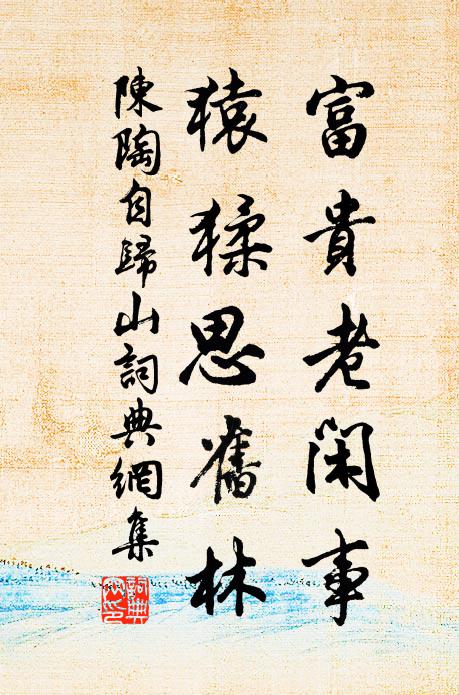 富貴老閑事
猿猱思舊林
陳陶自歸山詞典網集